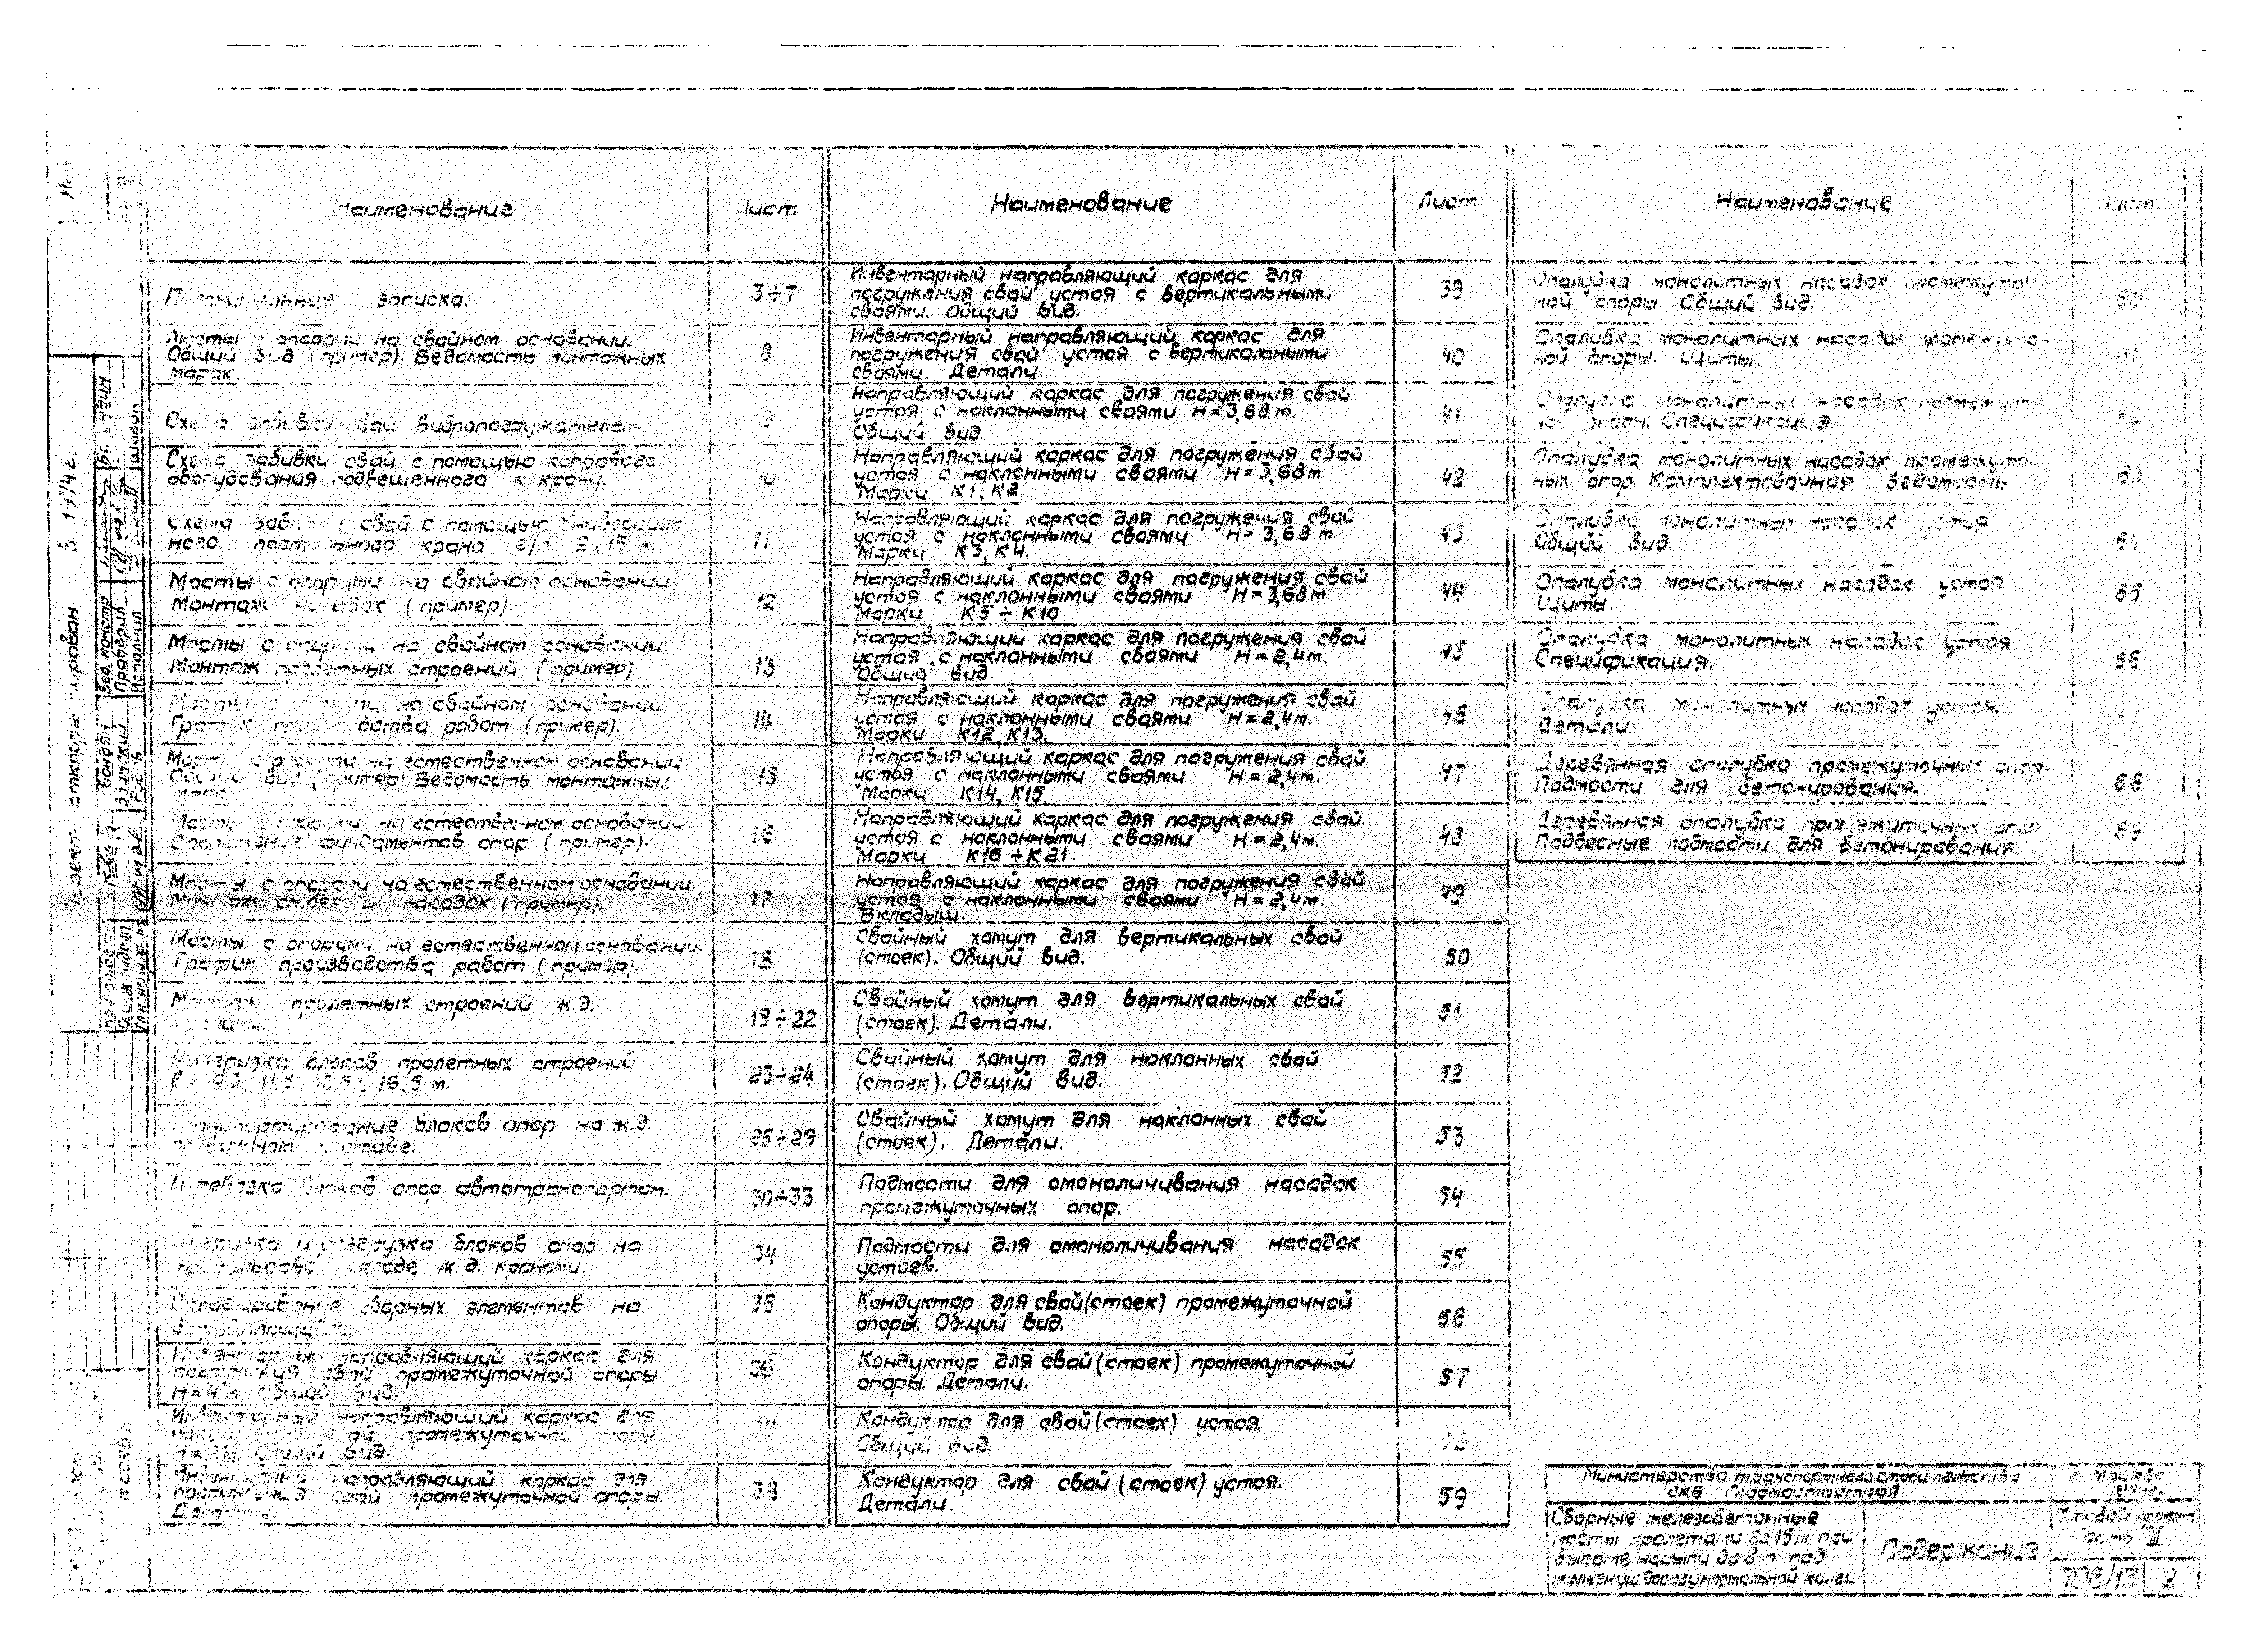 Наименование
Лист
записка.
3÷7
Мосты с опорами на свайном основании.
Общий вид (пример). Ведомость монтажных
марок
8
Схема забивки свай вибропогружателем.
9
Схема забивки свай с помощью копрового
оборудования подвешенного к крану.
10
Схема забивки свай с помощью
ного портального крана г/п 2,15 т.
11
Мосты с опорами на свайном основании.
Монтаж насадок (пример).
12
Мосты с опорами на свайном основании.
Монтаж пролетных строений (пример)
13
Мосты с опорами на свайном основании.
График производства работ (пример).
14
Мосты с опорами на естественном основании.
Общий вид (пример). Ведомость монтажных
15
Мосты с опорами на естественном основании.
Сооружение фундаментов опор (пример).
16
Мосты с опорами на естественном основании.
Монтаж стоек и насадок (пример).
17
Мосты с опорами на естественном основании.
График производства работ (пример).
18
Монтаж пролетных строений ж.д.
кранами.
19÷22
блоков пролетных строений
16,5 м.
23÷24
Транспортирование блоков опор на ж.д.
подвижном составе.
25÷29
Перевозка блоков опор автотранспортом.
30÷33
Погрузка и разгрузка блоков опор на
складе ж.д. кранами.
34
Складирование сборных элементов на
35
Инвентарный направляющий каркас для
погружения свай промежуточной опоры
H=4м. Общий вид.
36
Инвентарный направляющий каркас для
погружения свай промежуточной опоры
Общий вид.
37
Инвентарный направляющий каркас для
погружения свай промежуточной опоры.
Детали.
38
Наименование
Лист
Инвентарный направляющий каркас для
погружения свай устоя с вертикальными
сваями. Общий вид.
39
Инвентарный направляющий каркас для
погружения свай устоя с вертикальными
сваями. Детали.
40
Направляющий каркас для погружения свай
устоя с наклонными сваями H=3,68 м.
Общий вид.
41
Направляющий каркас для погружения свай
устоя с наклонными сваями H=3,68м.
Марки К1, К2.
42
Направляющий каркас для погружения свай
устоя с наклонными сваями H=3,68 м.
Марки К3, К4.
43
Направляющий каркас для погружения свай
устоя с наклонными сваями H=3,68м.
Марки К5 ÷ К10
44
Направляющий каркас для погружения свай
устоя с наклонными сваями H=2,4м.
Общий вид
45
Направляющий каркас для погружения свай
устоя с наклонными сваями H=2,4м.
Марки К12, К13.
46
Направляющий каркас для погружения свай
устоя с наклонными сваями H=2,4м.
Марки К14, К15.
47
Направляющий каркас для погружения свай
устоя с наклонными сваями H=2,4м.
Марки К16 ÷ К21.
48
Направляющий каркас для погружения свай
устоя с наклонными сваями H=2,4м.
Вкладыш.
49
Свайный хомут для вертикальных свай
(стоек). Общий вид.
50
Свайный хомут для вертикальных свай
(стоек). Детали.
51
Свайный хомут для наклонных свай
(стоек). Общий вид.
52
Свайный хомут для наклонных свай
(стоек). Детали.
53
Подмости для омоноличивания насадок
промежуточных опор.
54
Подмости для омоноличивания насадок
устоев.
55
Кондуктор для свай (стоек) промежуточной
опоры. Общий вид.
56
Кондуктор для свай (стоек) промежуточной
опоры. Детали.
57
Кондуктор для свай (стоек) устоя.
Общий вид.
58
Кондуктор для свай (стоек) устоя.
Детали.
59
Наименование
Лист
Опалубка монолитных насадок промежуточ-
ной опоры. Общий вид.
60
Опалубка монолитных насадок промежуточ-
ной опоры. Щиты.
61
Опалубка монолитных насадок промежуточ-
ной опоры. Спецификация.
62
Опалубка монолитных насадок промежуточ-
ных опор. Комплектовочная ведомость
63
Опалубка монолитных насадок устоя
Общий вид.
64
Опалубка монолитных насадок устоя
Щиты.
65
Опалубка монолитных насадок устоя
Спецификация.
66
Опалубка монолитных насадок устоя.
Детали.
67
Деревянная опалубка промежуточных опор.
Подмости для бетонирования.
68
Деревянная опалубка промежуточных опор
Подвесные подмости для бетонирования.
69
Министерство транспортного строительства
СКБ Главмостостроя
г. Москва
Сборные железобетонные
мосты пролетами до 15 м при
высоте насыпи до 8 м под
железную дорогу нормальной колеи
Содержание
Типовой проект
Часть III
708/13
2
Проект откорректирован в 1974 г.
Вед. констр
Проверил
Исполнил